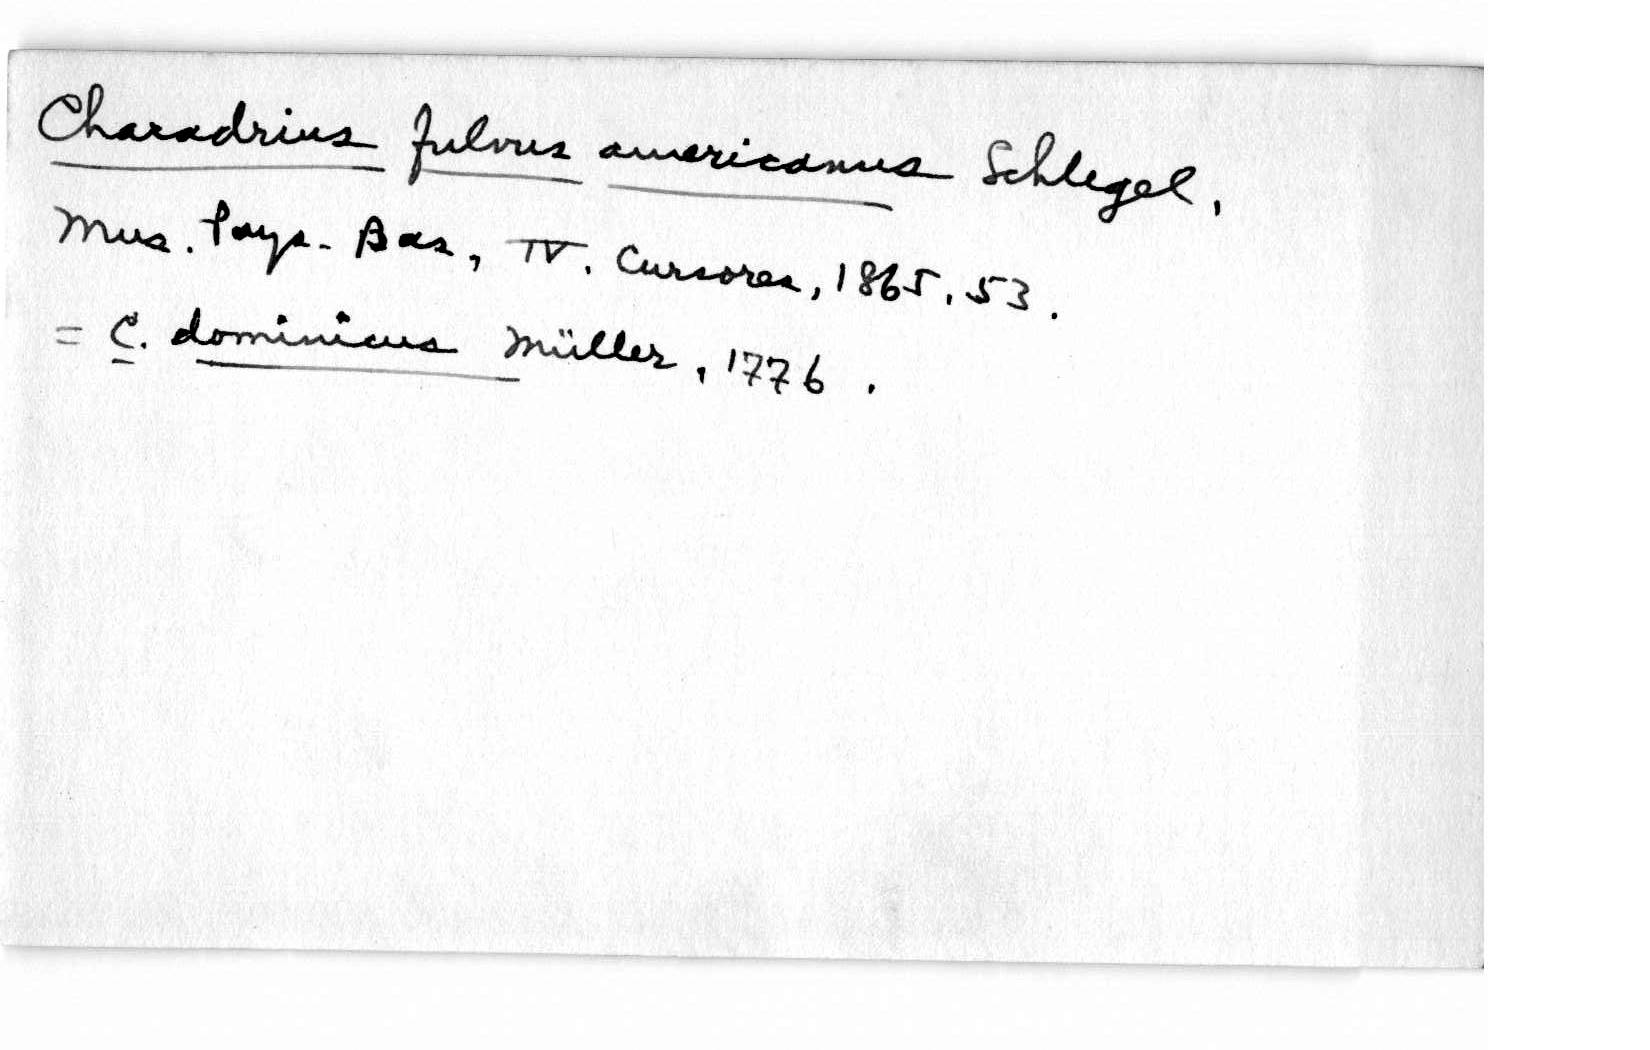 Charadrius fulvus americanus Schlegel,
Mus. Pays-Bas, IV. Cursores, 1865, 53.
= C. dominicus Müller, 1776.